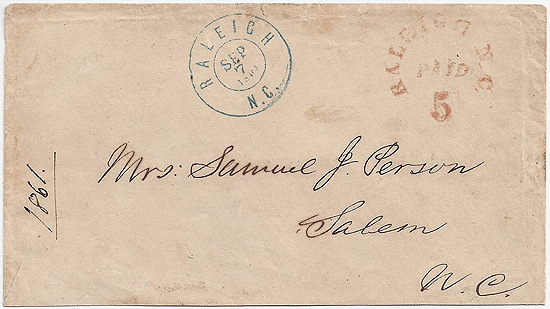 RALEIGH
SEP
7
1861
N.C.
RALEIGH N.C.
PAID
5
Mrs: Samuel J. Person
Salem
N.C.
1861.